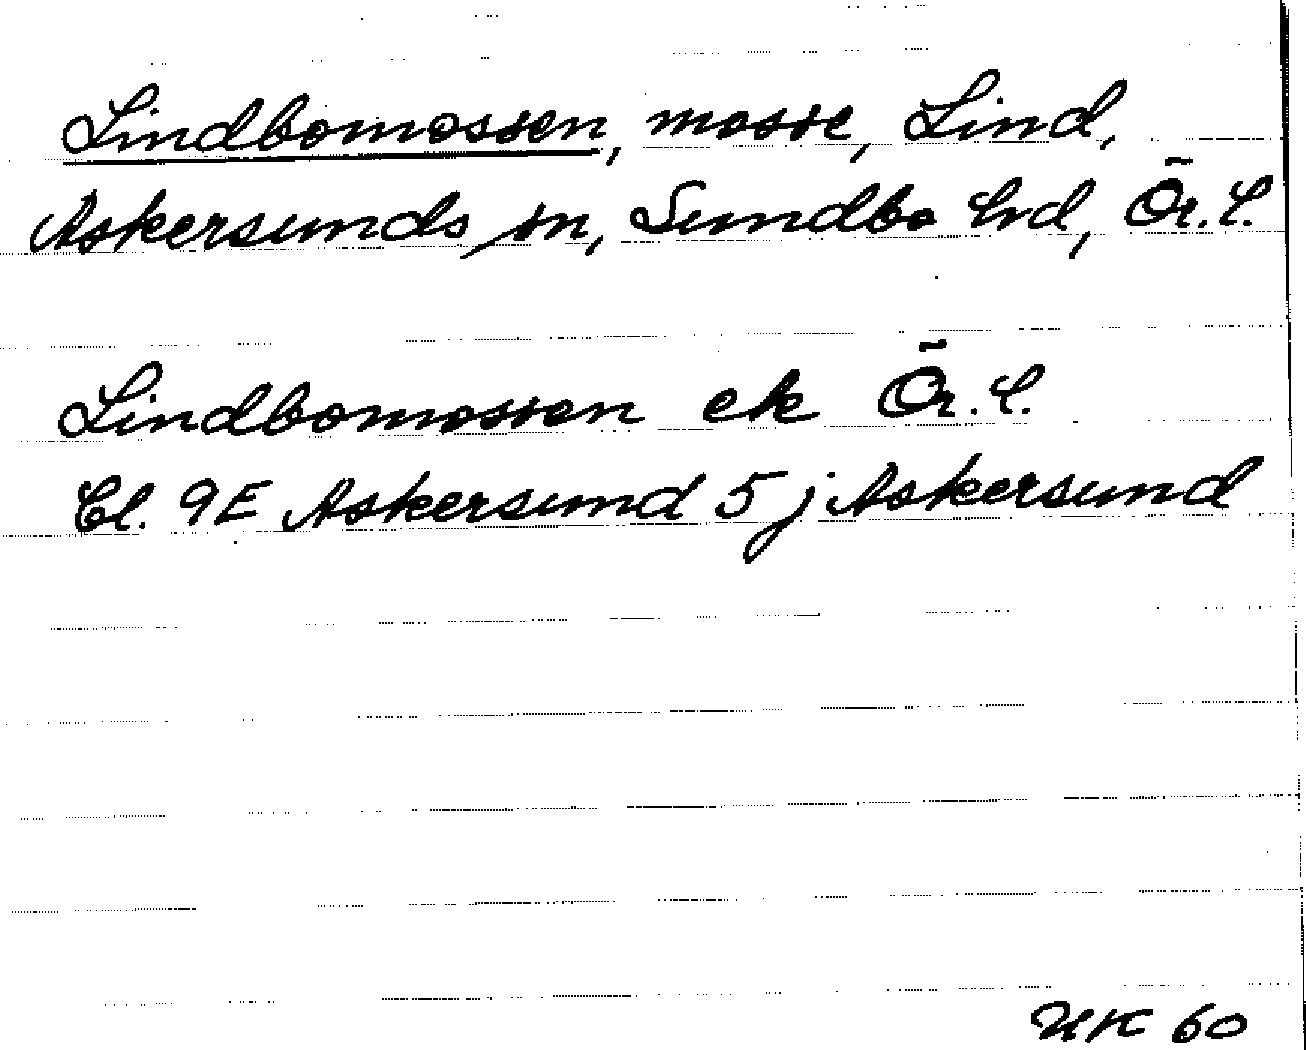 Lindbomossen, mosse, Lind,
Askersunds sn, Sundbo hd, Ör. l.
Lindbomossen ek Ör. l.
Bl. 9E Askersund 5j Askersund
UK 60